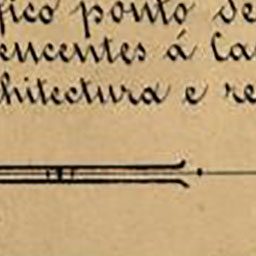 fico ponto de
encentes á Ca
hitectura e re